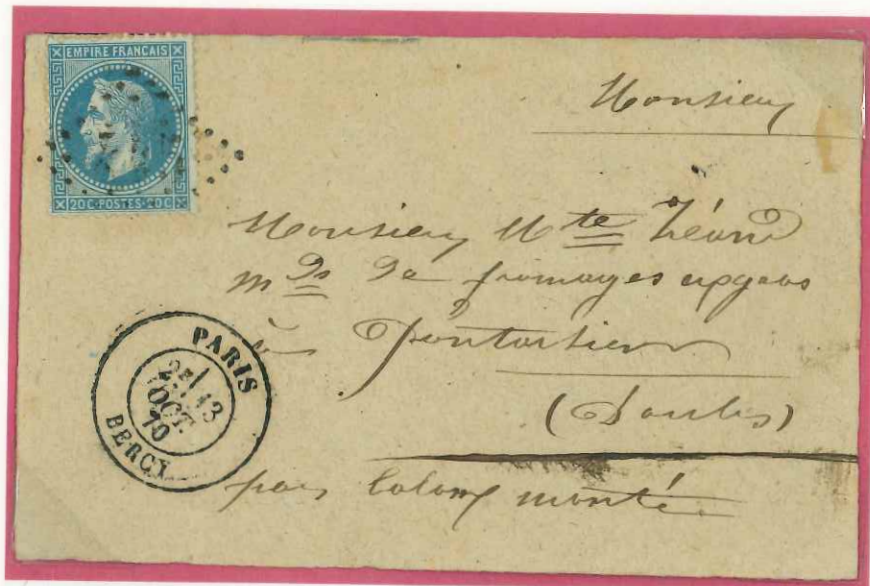 EMPIRE FRANÇAIS
20 C·POSTES·20 C
Monsieur
Monsieur
mds de fromages en gros
à Pontarlier
(Doubs)
PARIS
2E / 13
OCT.
70
BERCY
par ballon monté